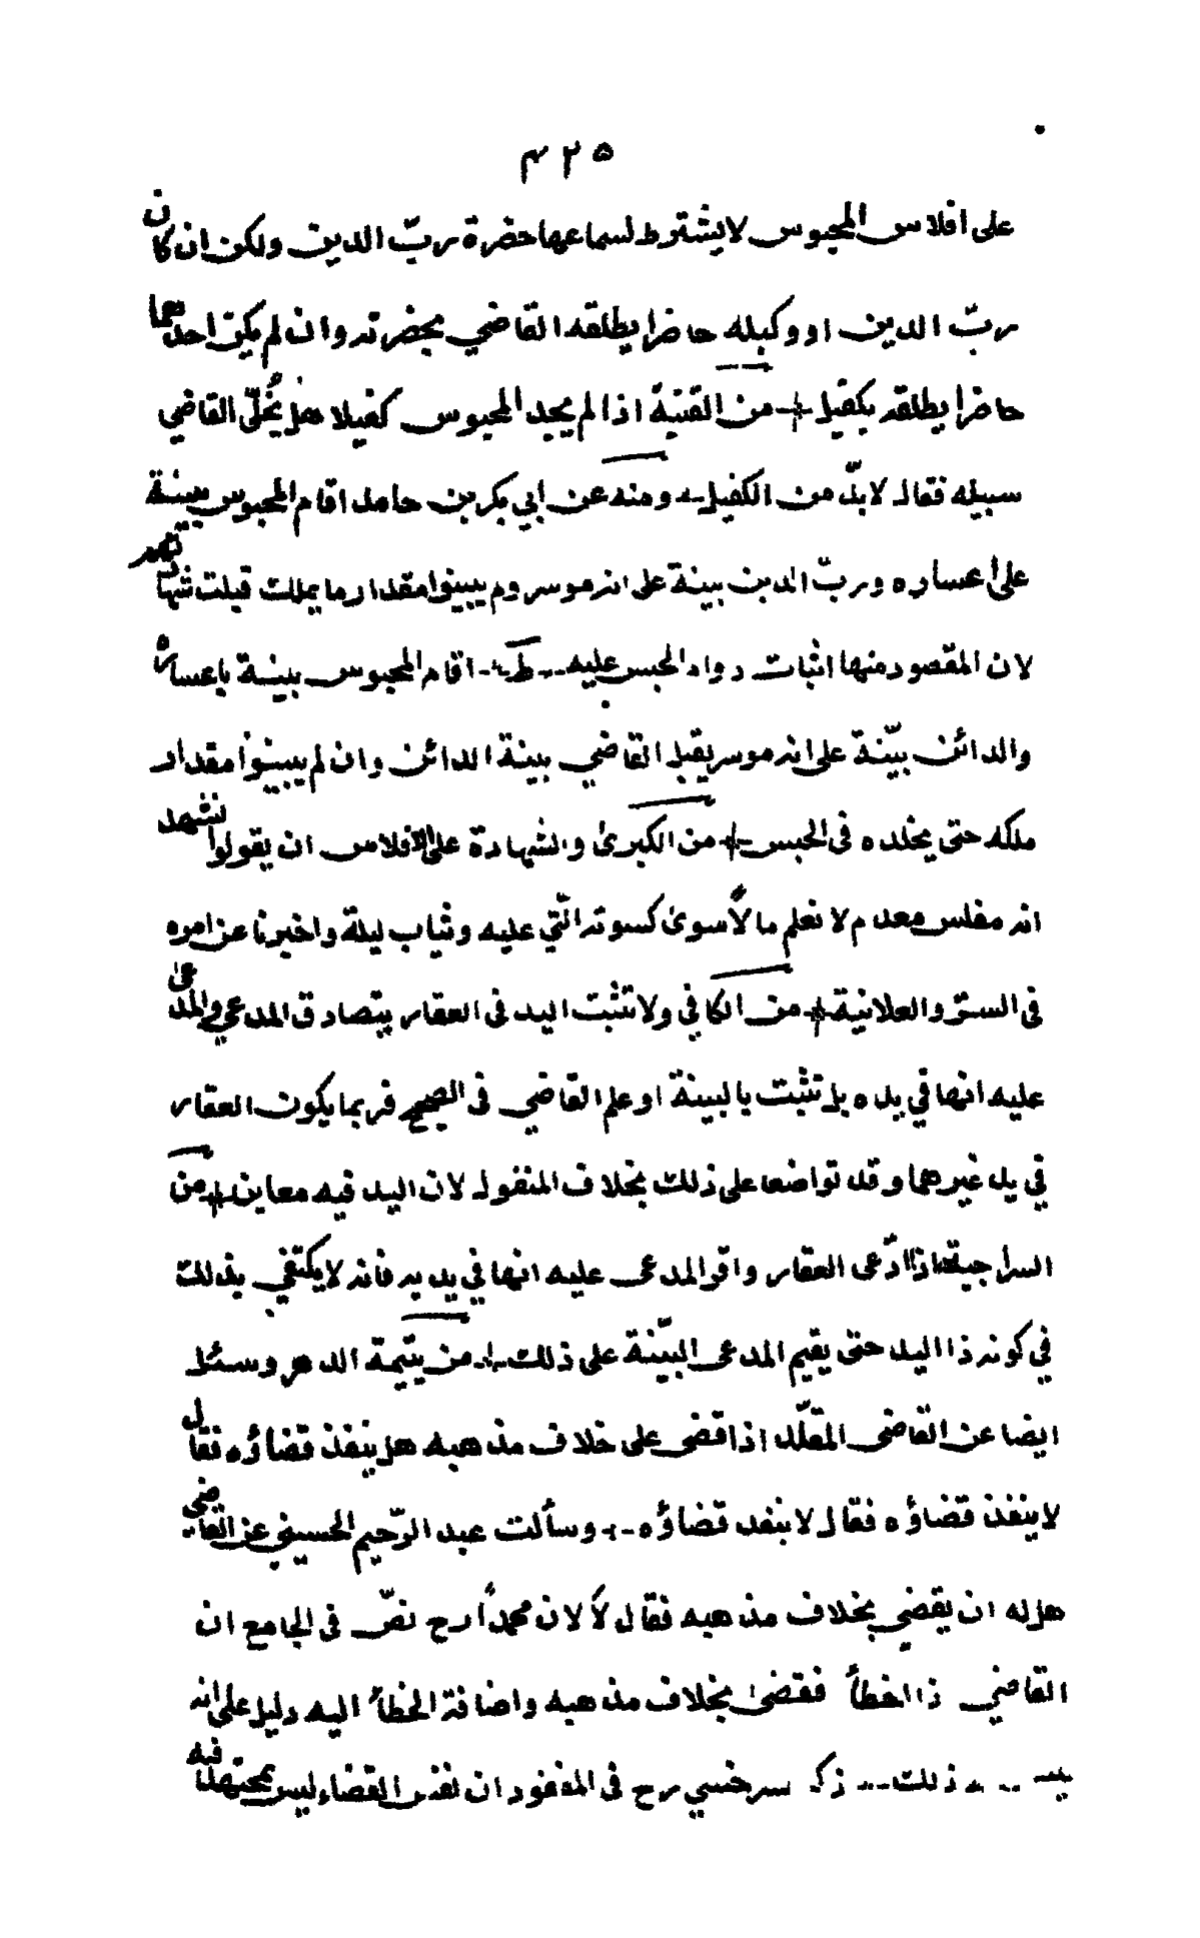 ٣٢٥
على افلاس المحبوس لا يشترط لسماعها حضرة ربّ الدين ولكن ان كان
ربّ الدين او وكيله حاضرا يطلقه القاضي بحضرته وان لم يكن احدهما
حاضرا يطلقه بكفيل من القنية اذا لم يجد المحبوس كفيلا هل يُخلّى القاضي
سبيله فقال لا بدّ من الكفيل ومنه عن ابي بكر بن حامد اقام المحبوس بينة
على اعساره وربّ الدين بينة على انه موسر ولم يبينوا مقدار ما يملك قبلت شهادتهم
لان المقصود منها اثبات دوام الحبس عليه ط اقام المحبوس بينة باعساره
والدائن بيّنة على انه موسر يقبل القاضي بينة الدائن وان لم يبينوا مقدار
ملكه حتى يخلده فى الحبس من الكبرى والشهادة على الافلاس ان يقولوا نشهد
انه مفلس معدم لا نعلم مالاً سوى كسوته الّتي عليه وثياب ليلة واخبرنا عن امره
فى السرّ والعلانية من الكافي ولا تثبت اليد فى العقار بتصادق المدعي والمدعى
عليه انها في يده بل تثبت بالبينة او علم القاضي فى الصحيح فربما يكون العقار
في يد غيرهما وقد تواضعا على ذلك بخلاف المنقول لان اليد فيه معاين من
السراجية اذا ادّعى العقار واقر المدعى عليه انها في يديه فانه لا يكتفي بذلك
في كونه ذا اليد حتى يقيم المدعى البيّنة على ذلك من يتيمة الدهر وسئل
ايضا عن القاضى المقلّد اذا قضى على خلاف مذهبه هل ينفذ قضاؤه فقال
لا ينفذ قضاؤه فقال لا ينفد قضاؤه وسألت عبد الرّحيم الحسيني عن القاضي
هل له ان يقضي بخلاف مذهبه فقال لا لان محمدًا رح نصّ فى الجامع ان
القاضي ذا اخطأ فقضى بخلاف مذهبه واضافة الخطأ اليه دليل على انه
ذلك ذكر سرخسي رح فى المفقود ان نفس القضاء ليس بمجتهد فيه